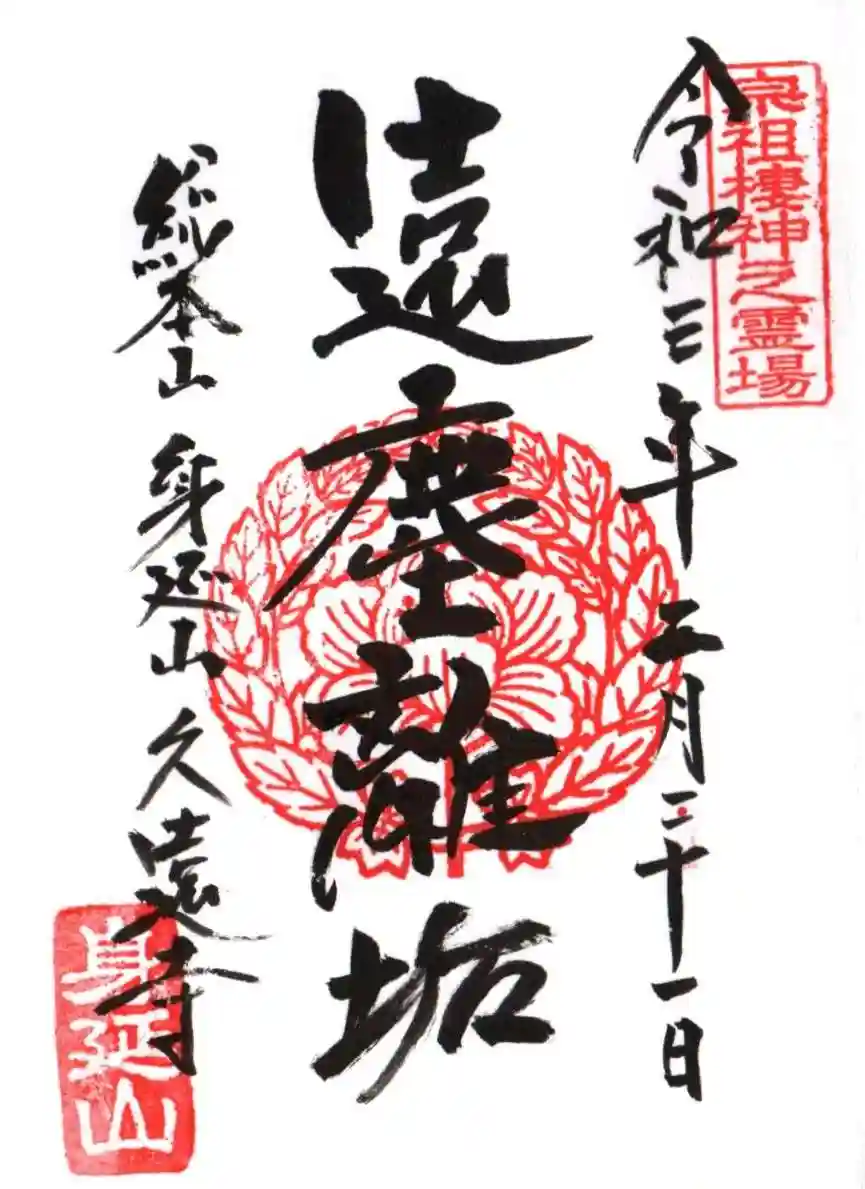 宗祖棲神之霊場
令和三年三月二十一日
遠塵離垢
総本山 身延山 久遠寺
身延山